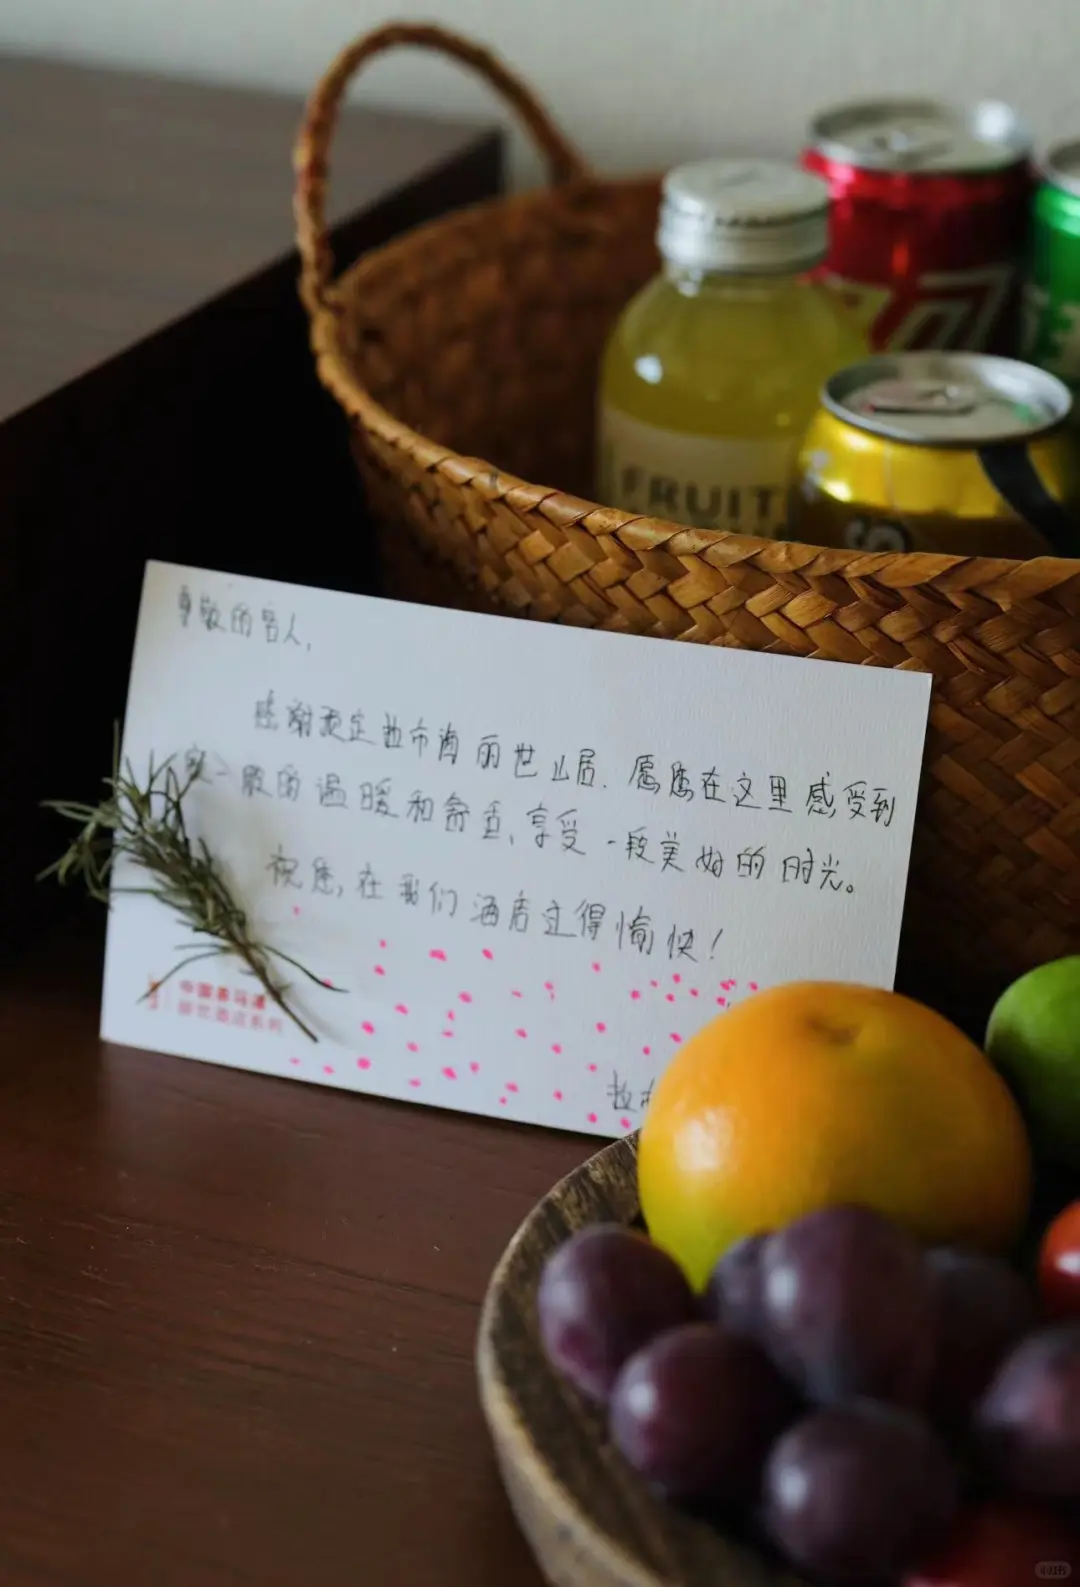 尊敬的客人,
感谢预定拉市海丽世山居.愿您在这里感受到
家一般的温暖和舒适,享受一段美好的时光。
祝您,在我们酒店过得愉快!
拉市
FRUIT
小红书